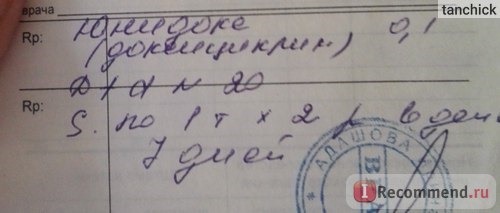 tanchick
врача
Rp: Юнидокс
(доксициклин) 0,1
D t d N 20
Rp:
S. по 1 т х 2 р в день
7 дней
АДАШОВА
ВРА
I Recommend.ru